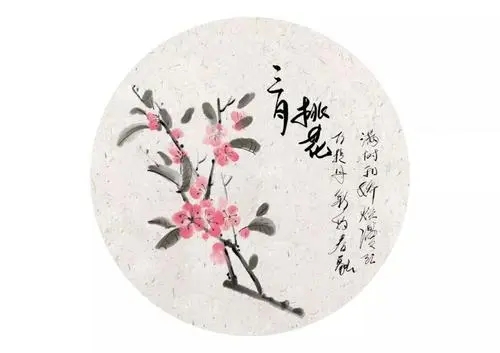 三月
桃花
满树和娇烂漫红
万枝丹彩灼春融